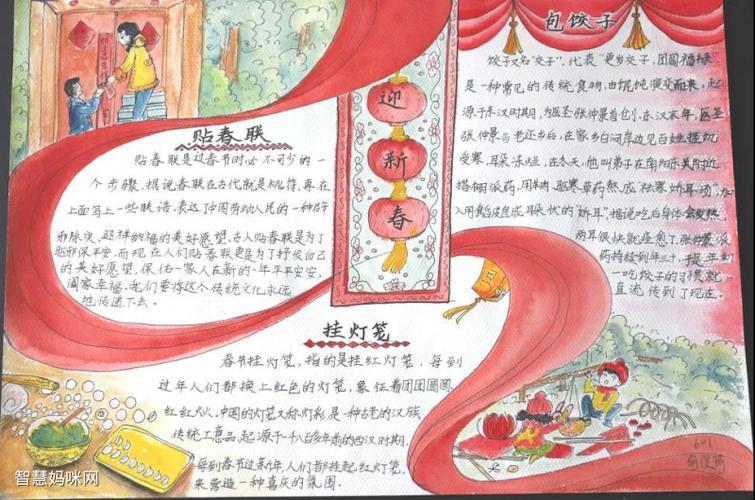 贴春联
贴春联是过春节时必不可少的一
个步骤,据说春联在古代就是桃符,再在
上面写上一些联语,表达了中国劳动人民的一种辟
邪除灾、迎祥纳福的美好愿望,古人贴春联是为了
驱邪保平安,而现在人们贴春联更是为了抒发自己
的美好愿望,保佑一家人在新的一年平平安安,
阖家幸福,我们要将这个传统文化永远
地传递下去。
迎
新
春
包饺子
饺子又名"交子",代表"更岁交子,团圆福禄"
是一种常见的传统食物,由馄饨演变而来,起
源于东汉时期,为医圣张仲景首创,东汉末年,医圣
张仲景告老还乡后,在家乡白河岸边见百姓
受寒,耳朵冻烂,在冬天,他叫弟子在南阳东关附近
搭棚派药,用羊肉 驱寒草药熬成"祛寒娇耳汤",加
入用面皮包成耳朵状的"娇耳",据说吃后身体会发热,
两耳很快就痊愈了,张仲景派
药持续到年三十,
一吃饺子的习惯就一
直流传到了现在。
挂灯笼
春节挂灯笼,指的是挂红灯笼,每到
过年人们都换上红色的灯笼,象征着团团圆圆,
红红火火,中国的灯笼又称灯彩,是一种古老的汉族
传统工艺品,起源于一千八百多年前的西汉时期,
每到春节过集年,人们都挂起红灯笼,
来营造一种喜庆的氛围。
601
智慧妈咪网